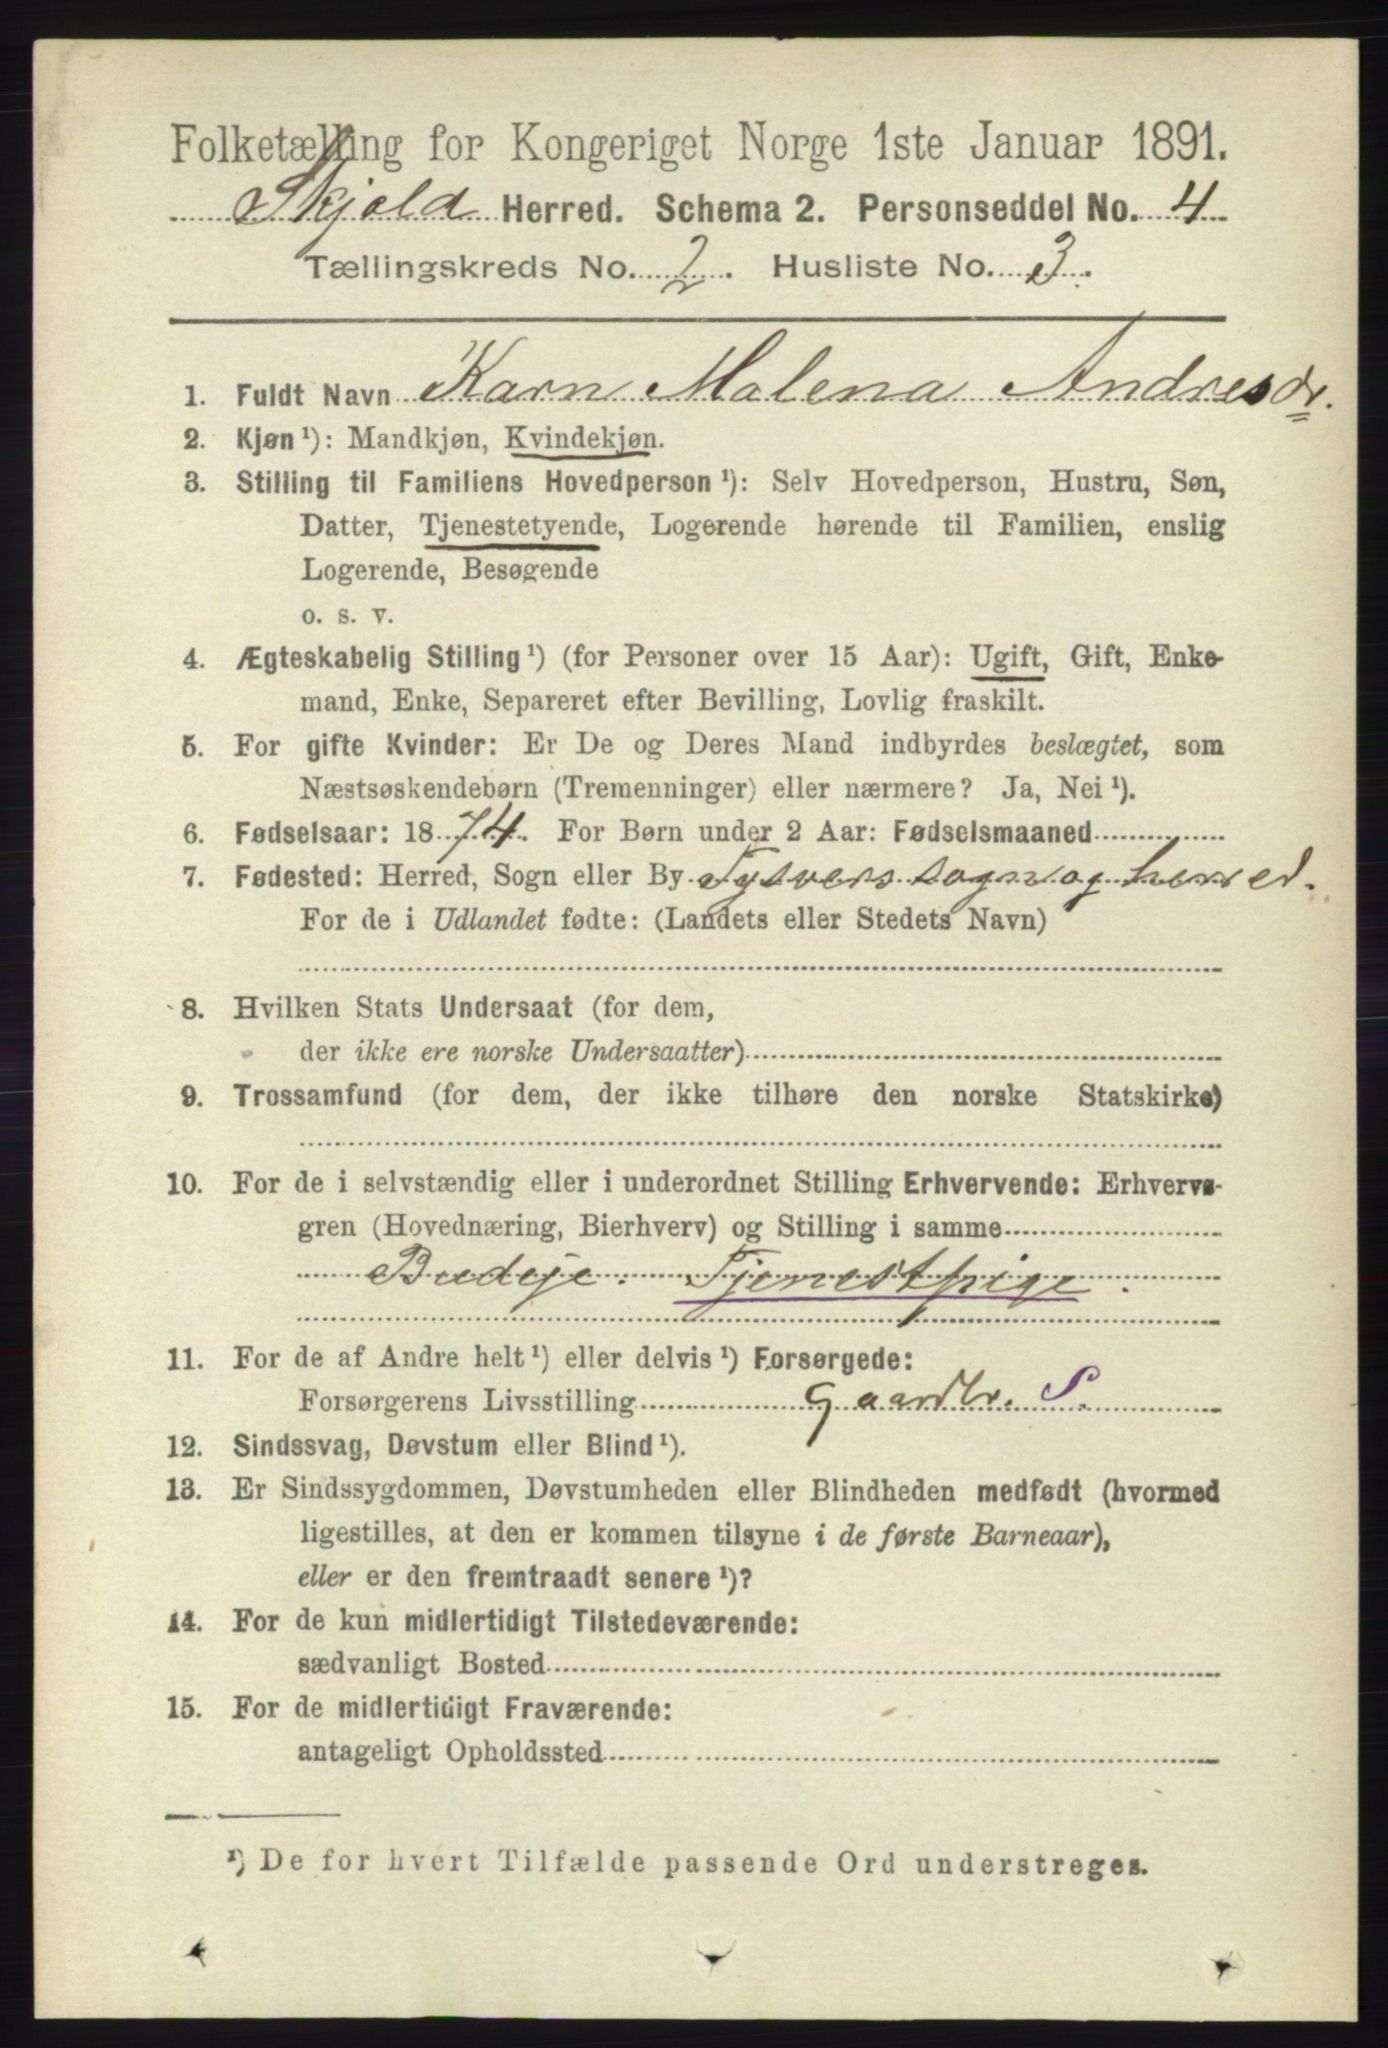 Folketælling for Kongeriget Norge 1ste Januar 1891.
Skjold Herred. Schema 2. Personseddel No. 4
Tællingskreds No. 2. Husliste No. 3.
1. Fuldt Navn Karn Malena Andresdr.
2. Kjøn ¹): Mandkjøn, Kvindekjøn.
3. Stilling til Familiens Hovedperson ¹): Selv Hovedperson, Hustru, Søn,
Datter, Tjenestetyende, Logerende hørende til Familien, enslig
Logerende, Besøgende
o. s. v.
4. Ægteskabelig Stilling ¹) (for Personer over 15 Aar): Ugift, Gift, Enke-
mand, Enke, Separeret efter Bevilling, Lovlig fraskilt.
5. For gifte Kvinder: Er De og Deres Mand indbyrdes beslægtet, som
Næstsøskendebørn (Tremenninger) eller nærmere? Ja, Nei ¹).
6. Fødselsaar: 1874. For Børn under 2 Aar: Fødselsmaaned
7. Fødested: Herred, Sogn eller By Tysvers sogn og herred.
For de i Udlandet fødte: (Landets eller Stedets Navn)
8. Hvilken Stats Undersaat (for dem,
der ikke ere norske Undersaatter)
9. Trossamfund (for dem, der ikke tilhøre den norske Statskirke)
10. For de i selvstændig eller i underordnet Stilling Erhvervende: Erhvervs-
gren (Hovednæring, Bierhverv) og Stilling i samme
Budeje. Tjenestpige.
11. For de af Andre helt ¹) eller delvis ¹) Forsørgede:
Forsørgerens Livsstilling Gaardbr. S.
12. Sindssvag, Døvstum eller Blind ¹).
13. Er Sindssygdommen, Døvstumheden eller Blindheden medfødt (hvormed
ligestilles, at den er kommen tilsyne i de første Barneaar),
eller er den fremtraadt senere ¹)?
14. For de kun midlertidigt Tilstedeværende:
sædvanligt Bosted
15. For de midlertidigt Fraværende:
antageligt Opholdssted
¹) De for hvert Tilfælde passende Ord understreges.